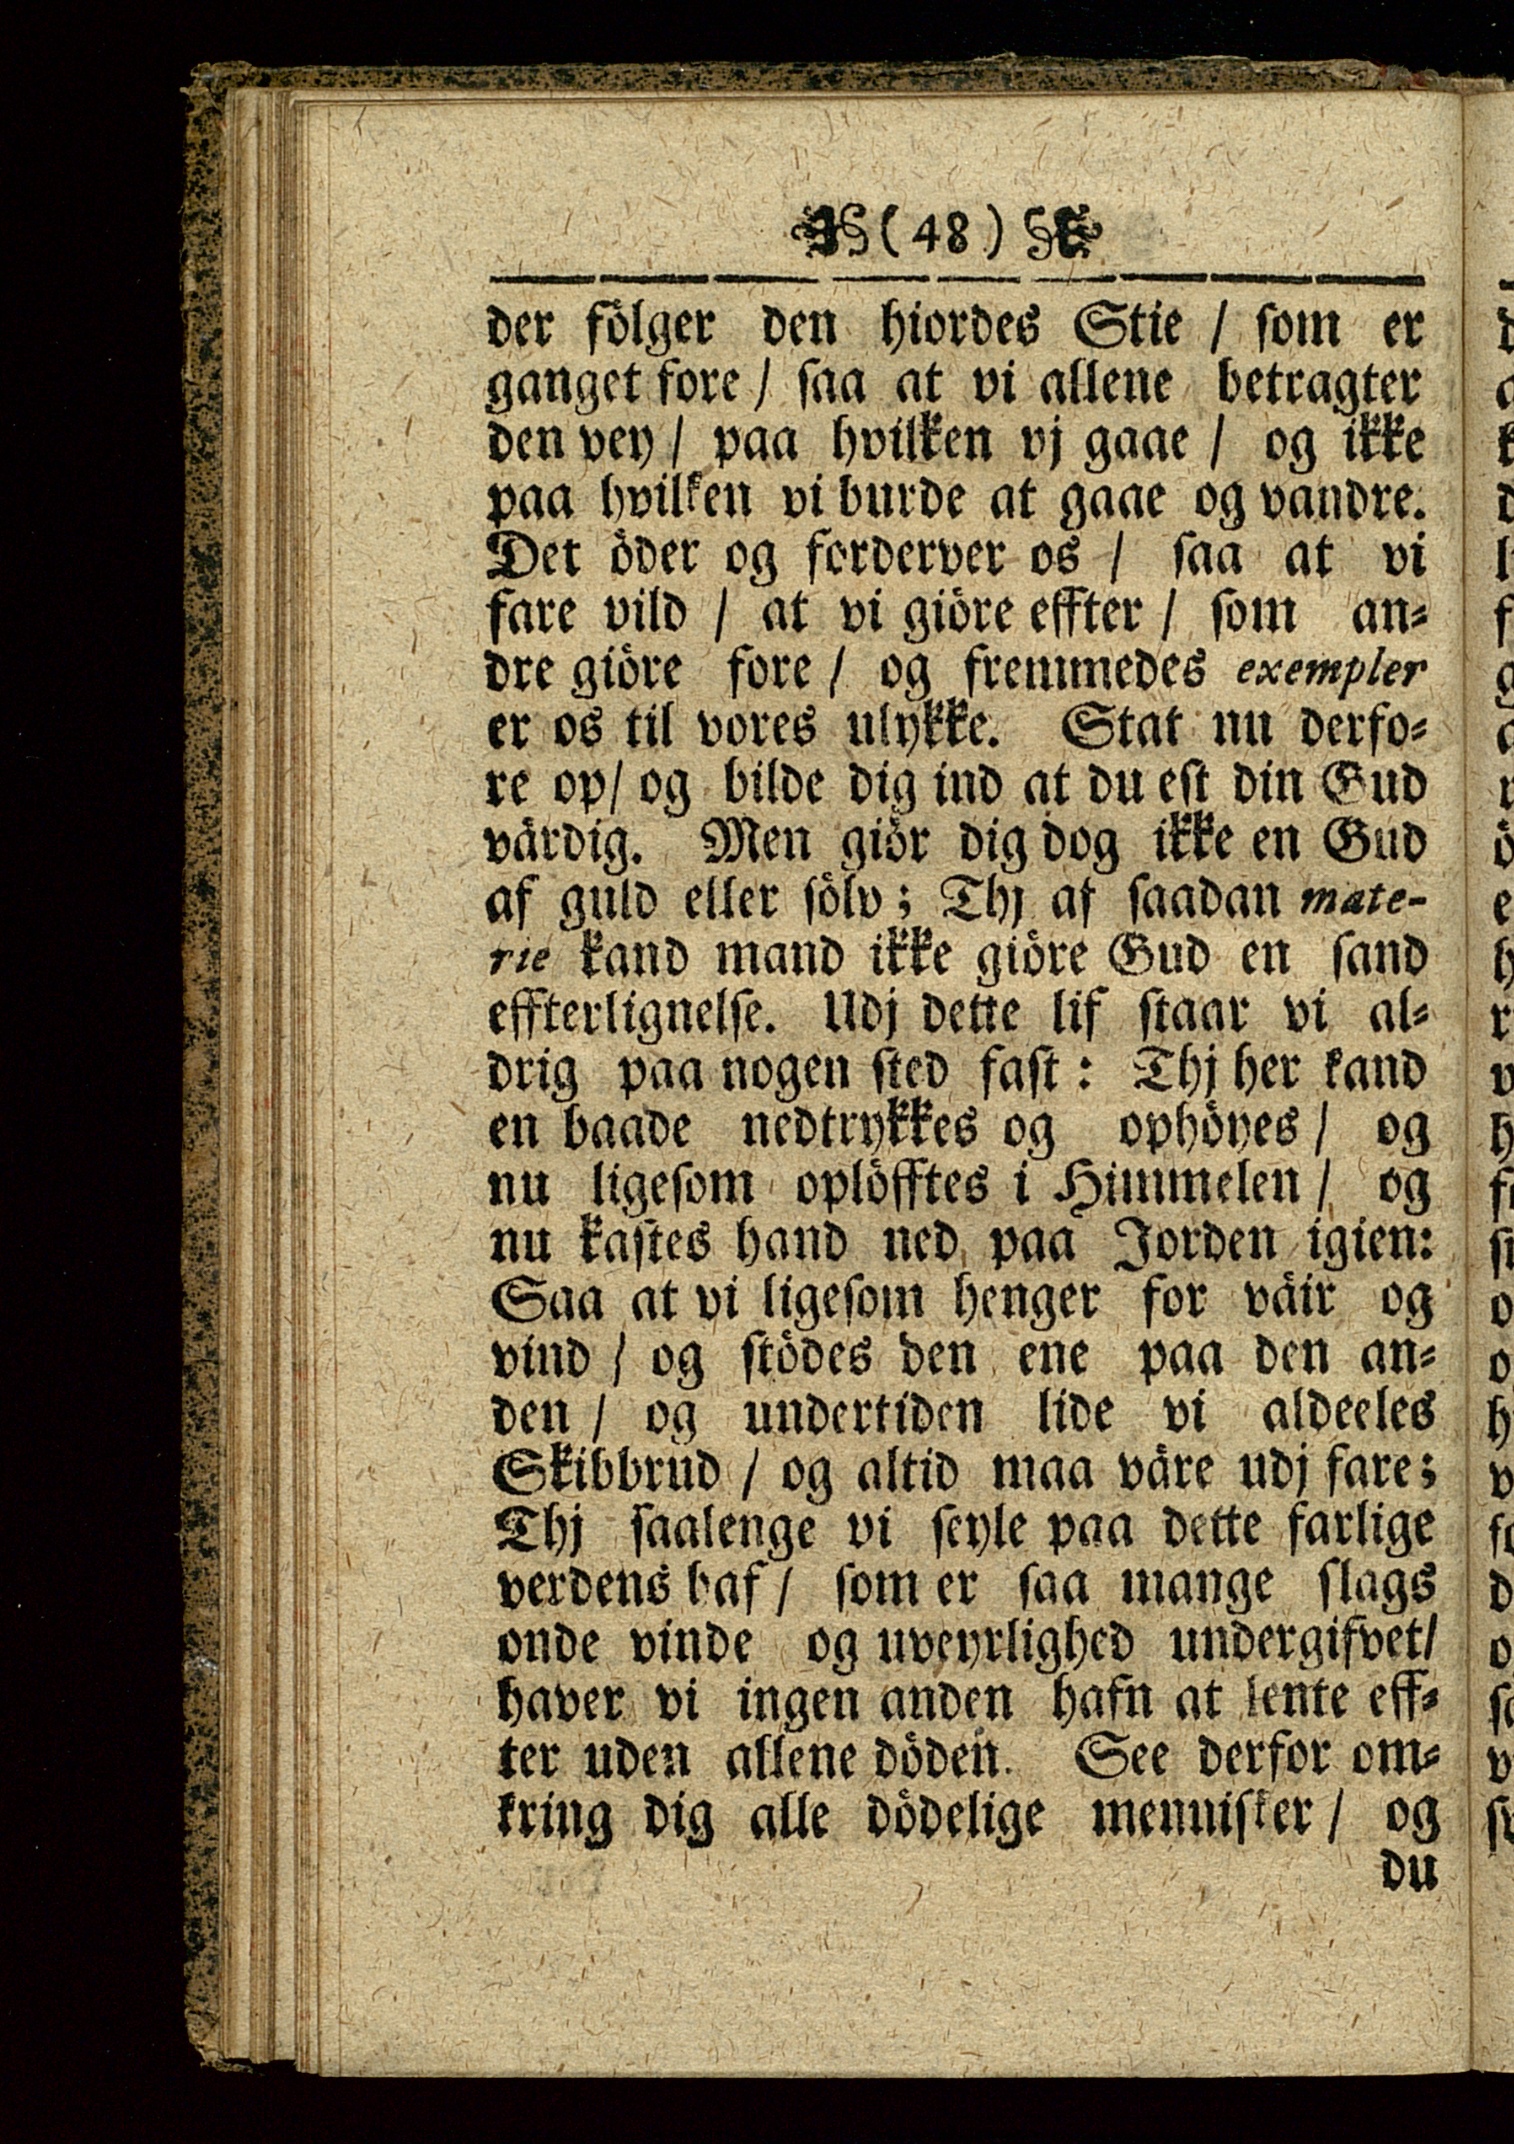 ( 48 )
der fölger den hiordes Stie / som er
ganget fore / saa at vi allene betragter
den vey / paa hvilken vj gaae / og ikke
paa hvilken vi burde at gaae og vandre.
Det öder og forderver os / saa at vi
fare vild / at vi giöre effter / som an-
dre giöre fore / og fremmedes exempler
er os til vores ulykke. Stat nu derfo-
re op/ og bilde dig ind at du est din Gud
värdig. Men giör dig dog ikke en Gud
af guld eller sölv; Thj af saadan mate-
rie kand mand ikke giöre Gud en sand
effterlignelse. Udj dette lif staar vi al-
drig paa nogen sted fast: Thj her kand
en baade nedtrykkes og ophöyes / og
nu ligesom oplöfftes i Himmelen / og
nu kastes hand ned paa Jorden igien:
Saa at vi ligesom henger for väir og
vind / og stödes den ene paa den an-
den / og undertiden lide vi aldeeles
Skibbrud / og altid maa väre udj fare;
Thj saalenge vi seyle paa dette farlige
verdens haf / som er saa mange slags
onde vinde og uveyrlighed undergifvet/
haver vi ingen anden hafn at lente eff-
ter uden allene döden. See derfor om-
kring dig alle dödelige mennisker / og
du